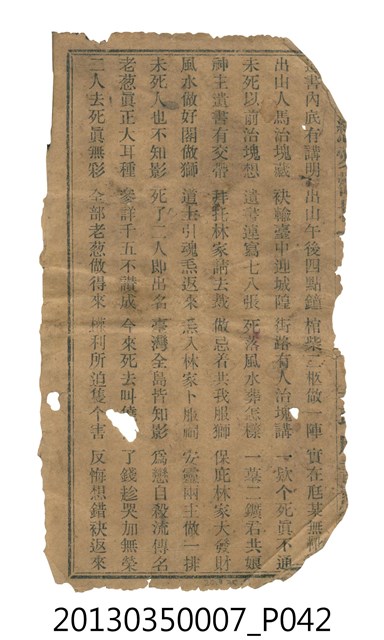 書內底有講明 出山午後四點鐘 棺柴二柩做一陣 實在庭某無
出山人馬治塊 袂輸臺中迎城隍 街路有人治塊講 一款个死真不通
未死以前治塊想 遺書連寫七八張 死落風水葬怎樣 一墓二鑛君共娘
神主遺書有交帶 拜托林家請去 做忌着共我服 保庇林家大發財
風水做好閣做獅 道士引魂煮返來 煮入林家卜服祠 安靈兩土做一排
未死人也不知影 死了二人即出名 臺灣全島皆知影 為戀自殺流傳名
老葱真正大耳種 參詳千五不讚成 今來死去叫 了錢趁哭加無榮
二人去死真無彩 全部老葱做得來 權利所迫隻个害 反悔想錯袂返來
20130350007_P042